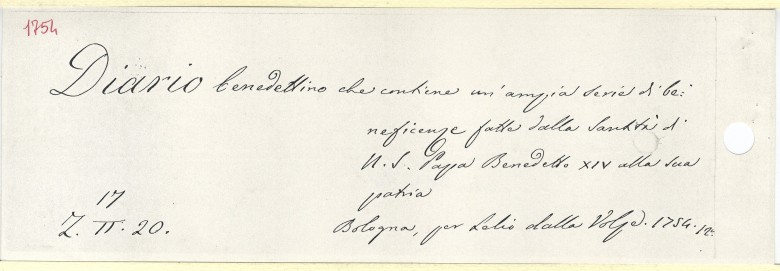 1754
Diario benedettino che contiene un' ampia serie di be=
neficenze fatte dalla Santità di
N. S. Papa Benedetto XIV alla sua
patria
17
Z. II. 20.
Bologna, per Lelio dalla Volpe. 1754. 12°